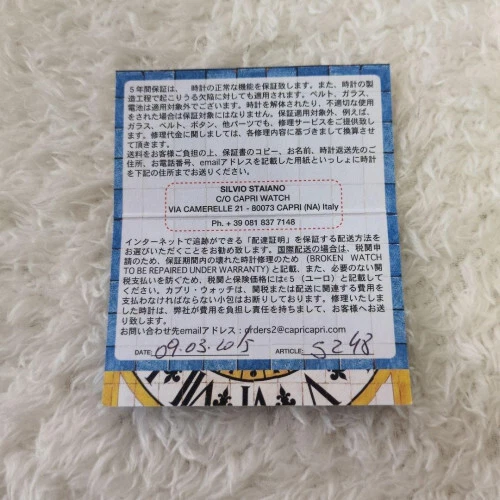 5年間保証は、 時計の正常な機能を保証致します。また、時計の製
造工程で起こりうる欠陥に対しても適用されます。ベルト、ガラス、
電池は適用対象外でございます。時計を解体されたり、不適切な使用
をされた場合は保証対象にはありません。保証適用対象外、例えば、
ガラス、ベルト、ボタン、他パーツでも、修理サービスをご提供致し
ます。修理代金に関しましては、各修理内容に基づきまして換算させ
て頂きます。
送料をお客様ご負担の上、保証書のコピー、お名前、時計返送先のご
住所、お電話番号、emailアドレスを記載した用紙といっしょに時計
を下記の住所までお送りください。
SILVIO STAIANO
C/O CAPRI WATCH
VIA CAMERELLE 21 - 80073 CAPRI (NA) Italy
Ph. + 39 081 837 7148
インターネットで追跡ができる「配達証明」を保証する配送方法を
お選びいただくことをお勧め致します。国際配送の場合は、税関申
請のため、保証期間内の壊れた時計修理のため (BROKEN WATCH
TO BE REPAIRED UNDER WARRANTY) と記載、また、必要のない関
税支払いを防ぐため、税関と保険価格には€5（ユーロ）と記載して
ください。カプリ・ウォッチは、関税または配送に関連する費用を
支払わなければならない小包はお断りしております。修理いたしま
した時計は、弊社が費用を負担し責任を持ちまして、お客様へお送
り致します。
お問い合わせ先emailアドレス：orders2@capricapri.com
DATE: 09.03.2015 ARTICLE: 5248